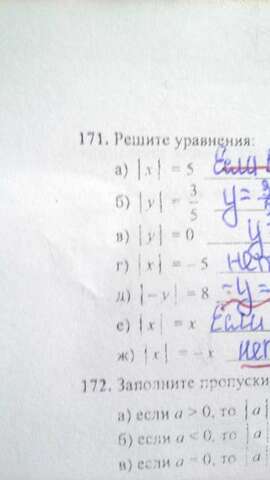 171. Решите уравнения:
а) |x| = 5 Если
б) |y| = 3/5 y =
в) |y| = 0 y
г) |x| = -5 нет
д) |-y| = 8 -y =
е) |x| = x Если
ж) |x| = -x нет
172. Заполните пропуски
а) если a > 0, то |a|
б) если a < 0, то |a|
в) если a = 0, то |a|